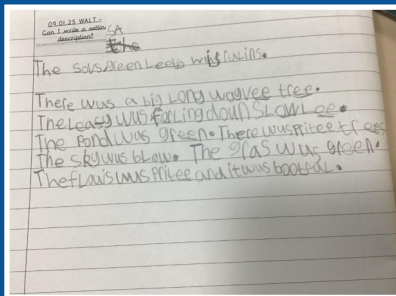 09.01.25 WALT:-
Can I write a settin
description? CA
The
The green Leefs wus
There was a big Long wayvee tree.
The Leasy was forling down SLOWLee.
The Pond wus green. There was pritee trees
The sky wus blow. The gras wus green.
The flauis wus Pritee and it wus bootful.